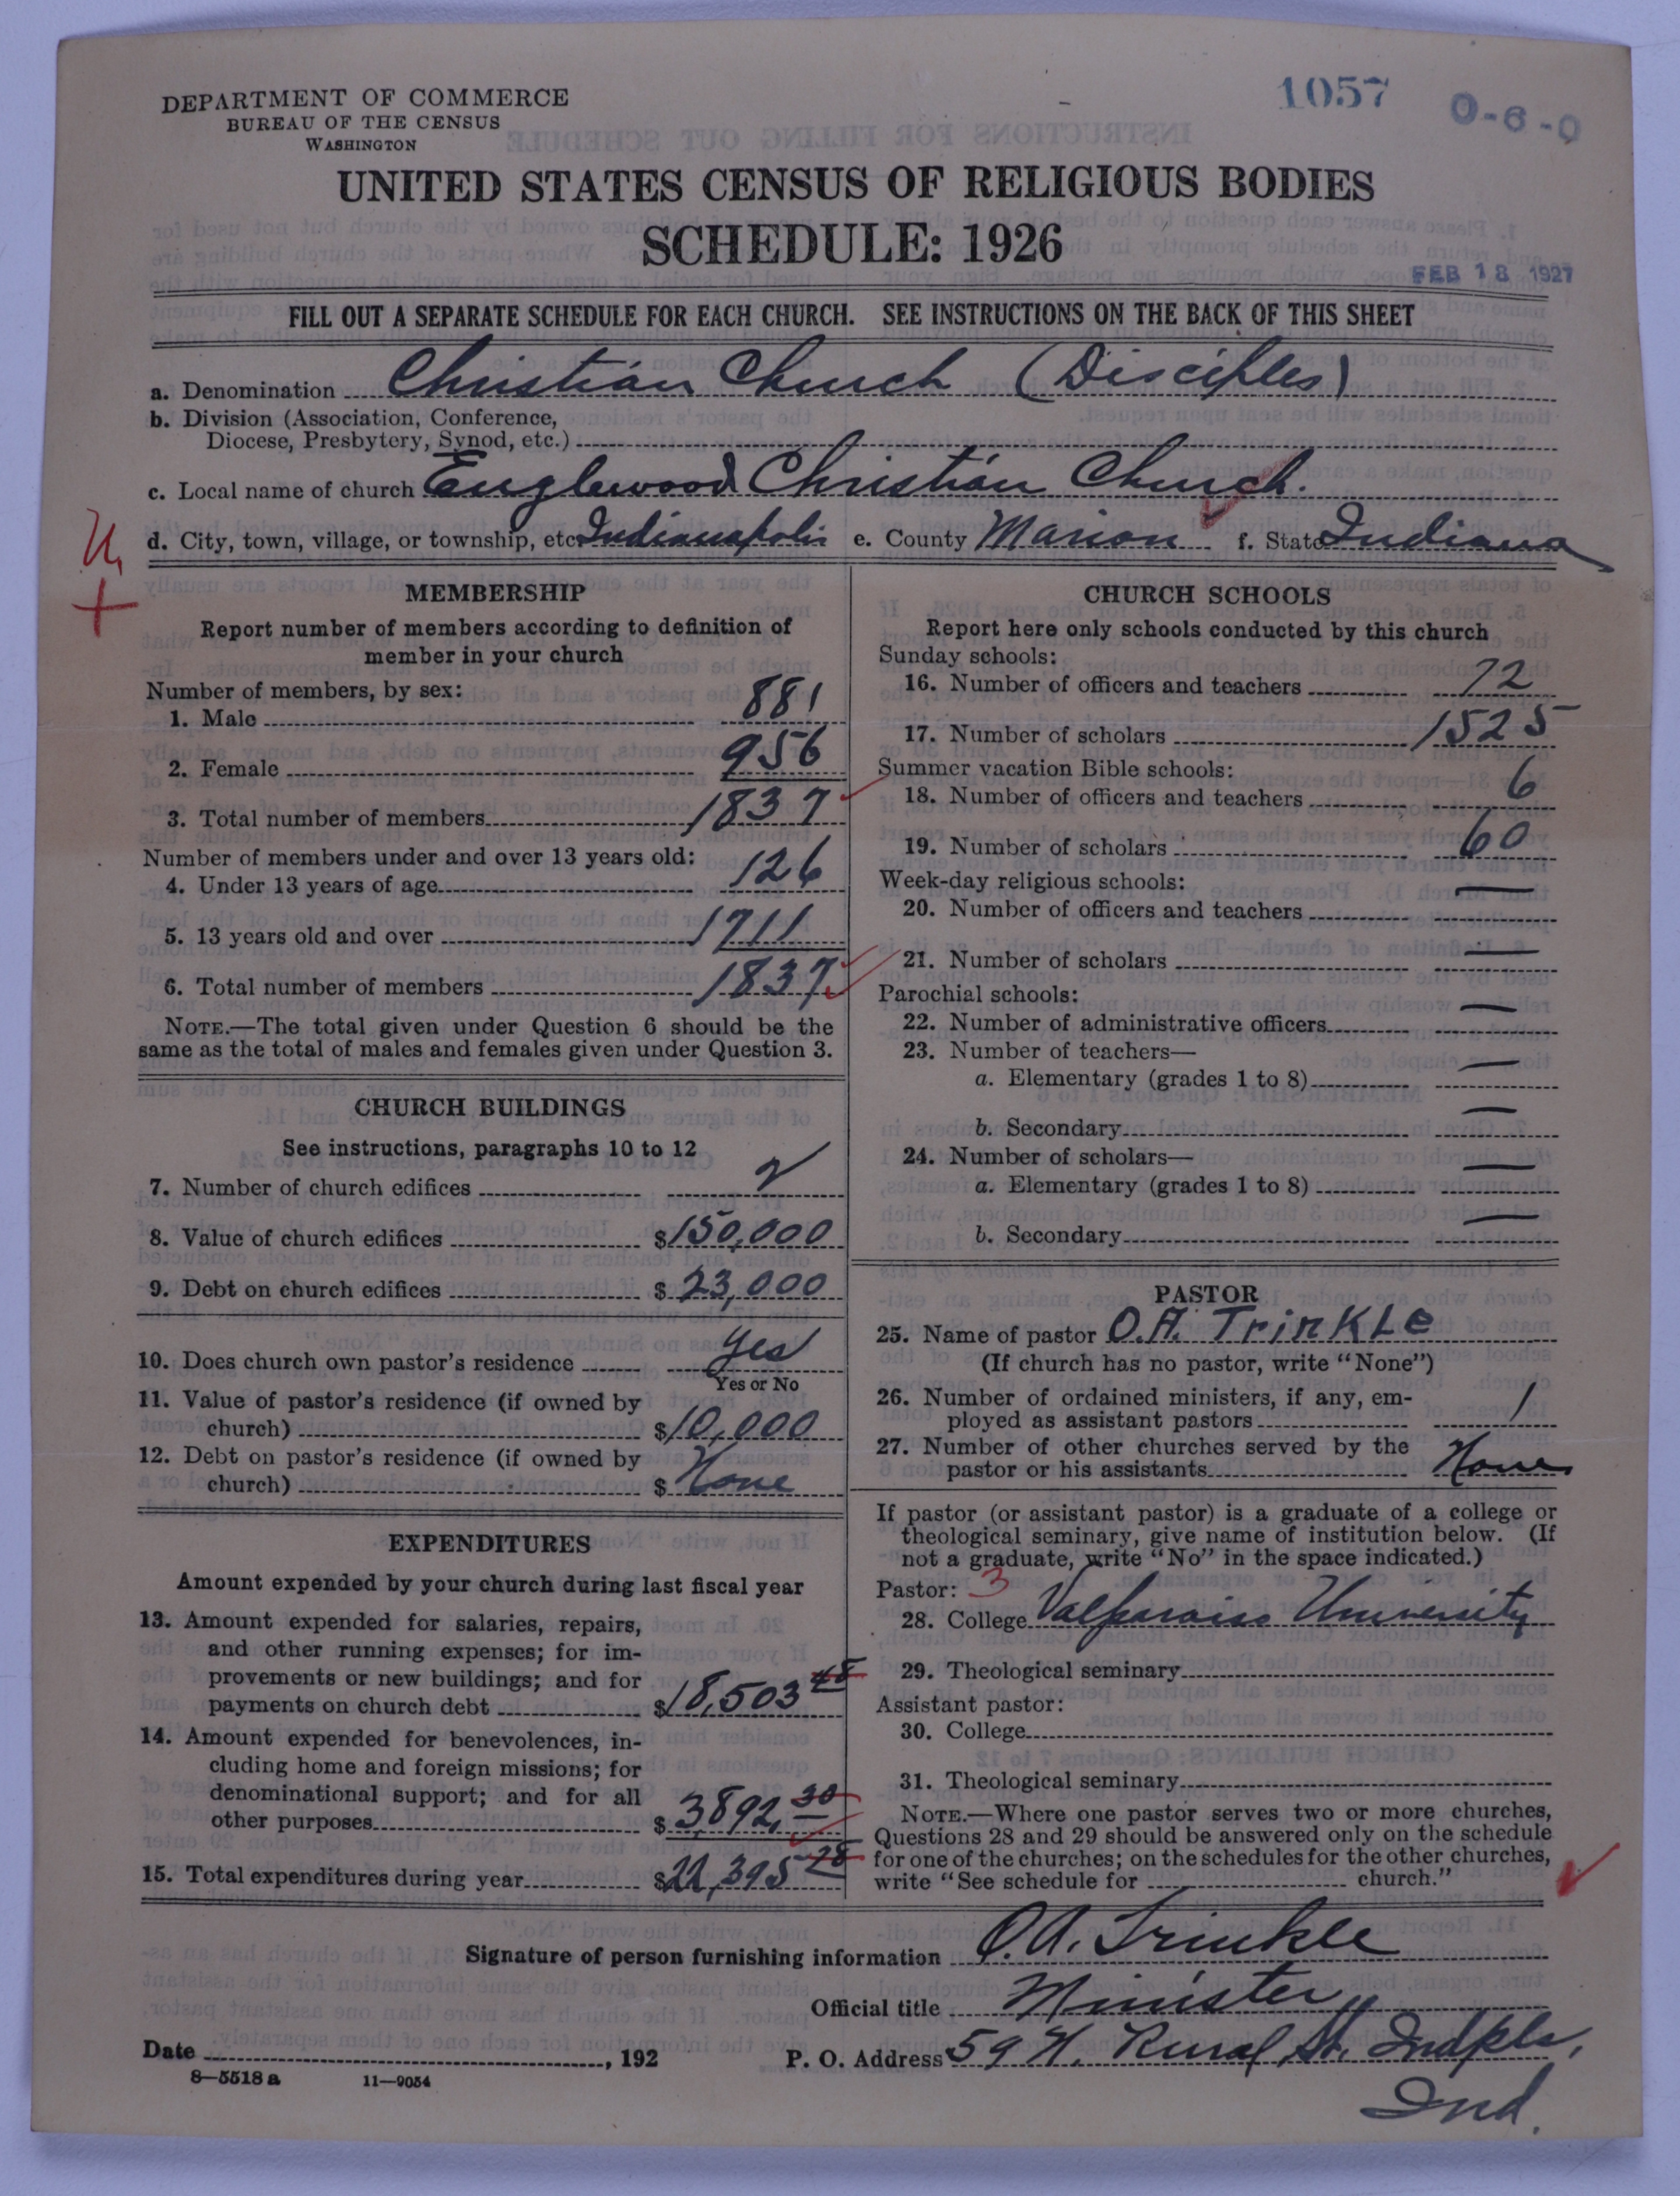 1057
0-6-0
DEPARTMENT OF COMMERCE
BUREAU OF THE CENSUS
WASHINGTON
UNITED STATES CENSUS OF RELIGIOUS BODIES
SCHEDULE: 1926
FEB 18 1927
FILL OUT A SEPARATE SCHEDULE FOR EACH CHURCH. SEE INSTRUCTIONS ON THE BACK OF THIS SHEET
a. Denomination Christian Church (Disciples)
b. Division (Association, Conference,
Diocese, Presbytery, Synod, etc.)
c. Local name of church Englewood Christian Church.
d. City, town, village, or township, etc. Indianapolis e. County Marion f. State Indiana
MEMBERSHIP
Report number of members according to definition of
member in your church
Number of members, by sex:
1. Male 881
2. Female 956
3. Total number of members 1837
Number of members under and over 13 years old:
4. Under 13 years of age 126
5. 13 years old and over 1711
6. Total number of members 1837
NOTE.—The total given under Question 6 should be the
same as the total of males and females given under Question 3.
CHURCH BUILDINGS
See instructions, paragraphs 10 to 12
7. Number of church edifices 2
8. Value of church edifices $150,000
9. Debt on church edifices $23,000
10. Does church own pastor's residence Yes
Yes or No
11. Value of pastor's residence (if owned by
church) $10,000
12. Debt on pastor's residence (if owned by
church) $None
EXPENDITURES
Amount expended by your church during last fiscal year
13. Amount expended for salaries, repairs,
and other running expenses; for im-
provements or new buildings; and for
payments on church debt $18,503 48
14. Amount expended for benevolences, in-
cluding home and foreign missions; for
denominational support; and for all
other purposes $3892, 30
15. Total expenditures during year $22,395 28
CHURCH SCHOOLS
Report here only schools conducted by this church
Sunday schools:
16. Number of officers and teachers 72
17. Number of scholars 1525
Summer vacation Bible schools:
18. Number of officers and teachers 6
19. Number of scholars 60
Week-day religious schools:
20. Number of officers and teachers —
21. Number of scholars —
Parochial schools:
22. Number of administrative officers —
23. Number of teachers—
a. Elementary (grades 1 to 8) —
b. Secondary —
24. Number of scholars—
a. Elementary (grades 1 to 8) —
b. Secondary —
PASTOR
25. Name of pastor O.A. Trinkle
(If church has no pastor, write "None")
26. Number of ordained ministers, if any, em-
ployed as assistant pastors 1
27. Number of other churches served by the
pastor or his assistants None
If pastor (or assistant pastor) is a graduate of a college or
theological seminary, give name of institution below. (If
not a graduate, write "No" in the space indicated.)
Pastor: 3
28. College Valparaiso University
29. Theological seminary
Assistant pastor:
30. College
31. Theological seminary
NOTE.—Where one pastor serves two or more churches,
Questions 28 and 29 should be answered only on the schedule
for one of the churches; on the schedules for the other churches,
write "See schedule for church."
Signature of person furnishing information O.A. Trinkle
Official title Minister
Date , 192 P. O. Address 59 N. Rural St. Indpls,
Ind.
8—5518a 11—9054